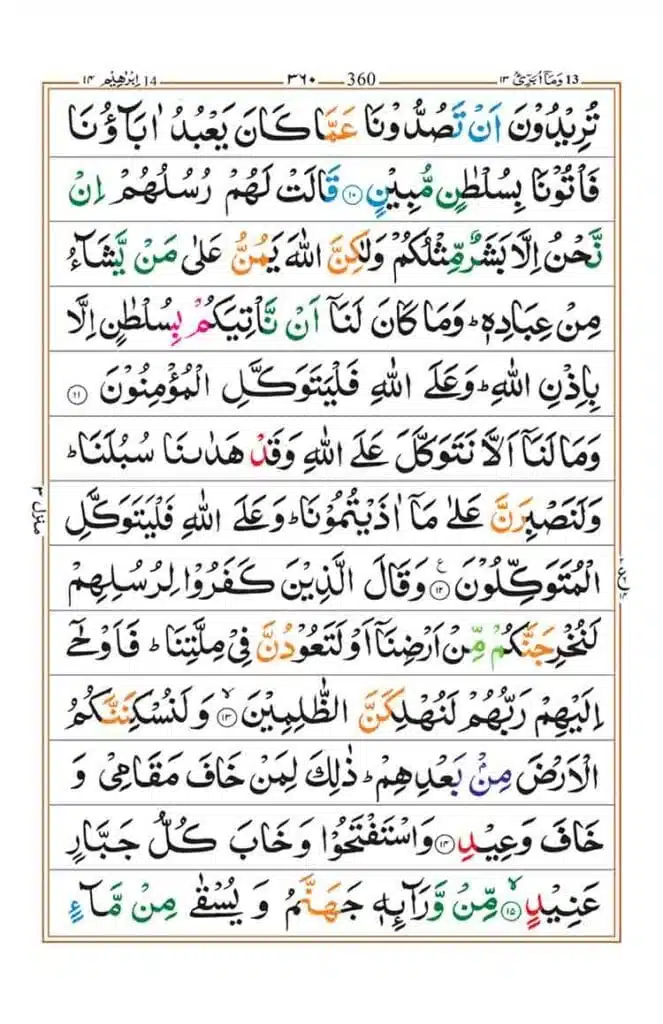 ابرٰهیم ۱۴ 14 ۳٦۰ 360 وَمَآ اُبَرِّئُ ۱۳ 13
تُرِيْدُوْنَ اَنْ تَصُدُّوْنَا عَمَّا كَانَ يَعْبُدُ اٰبَآؤُنَا
فَاْتُوْنَا بِسُلْطٰنٍ مُّبِيْنٍ ۱۰ قَالَتْ لَهُمْ رُسُلُهُمْ اِنْ
نَّحْنُ اِلَّا بَشَرٌ مِّثْلُكُمْ وَلٰكِنَّ اللّٰهَ يَمُنُّ عَلٰى مَنْ يَّشَآءُ
مِنْ عِبَادِهٖ ؕ وَمَا كَانَ لَنَاۤ اَنْ نَّاْتِيَكُمْ بِسُلْطٰنٍ اِلَّا
بِاِذْنِ اللّٰهِ ؕ وَعَلَى اللّٰهِ فَلْيَتَوَكَّلِ الْمُؤْمِنُوْنَ ۱۱
وَمَا لَنَاۤ اَلَّا نَتَوَكَّلَ عَلَى اللّٰهِ وَقَدْ هَدٰىنَا سُبُلَنَا ؕ
وَلَنَصْبِرَنَّ عَلٰى مَاۤ اٰذَيْتُمُوْنَا ؕ وَعَلَى اللّٰهِ فَلْيَتَوَكَّلِ
الْمُتَوَكِّلُوْنَ ۱۲ ع وَقَالَ الَّذِيْنَ كَفَرُوْا لِرُسُلِهِمْ
لَنُخْرِجَنَّكُمْ مِّنْ اَرْضِنَاۤ اَوْ لَتَعُوْدُنَّ فِيْ مِلَّتِنَا ؕ فَاَوْحٰۤى
اِلَيْهِمْ رَبُّهُمْ لَنُهْلِكَنَّ الظّٰلِمِيْنَ ۱۳ۙ وَلَنُسْكِنَنَّكُمُ
الْاَرْضَ مِنْۢ بَعْدِهِمْ ؕ ذٰلِكَ لِمَنْ خَافَ مَقَامِيْ وَ
خَافَ وَعِيْدِ ۱۴ وَاسْتَفْتَحُوْا وَخَابَ كُلُّ جَبَّارٍ
عَنِيْدٍ ۱۵ۙ مِّنْ وَّرَآئِهٖ جَهَنَّمُ وَيُسْقٰى مِنْ مَّآءٍ
منزل ۳